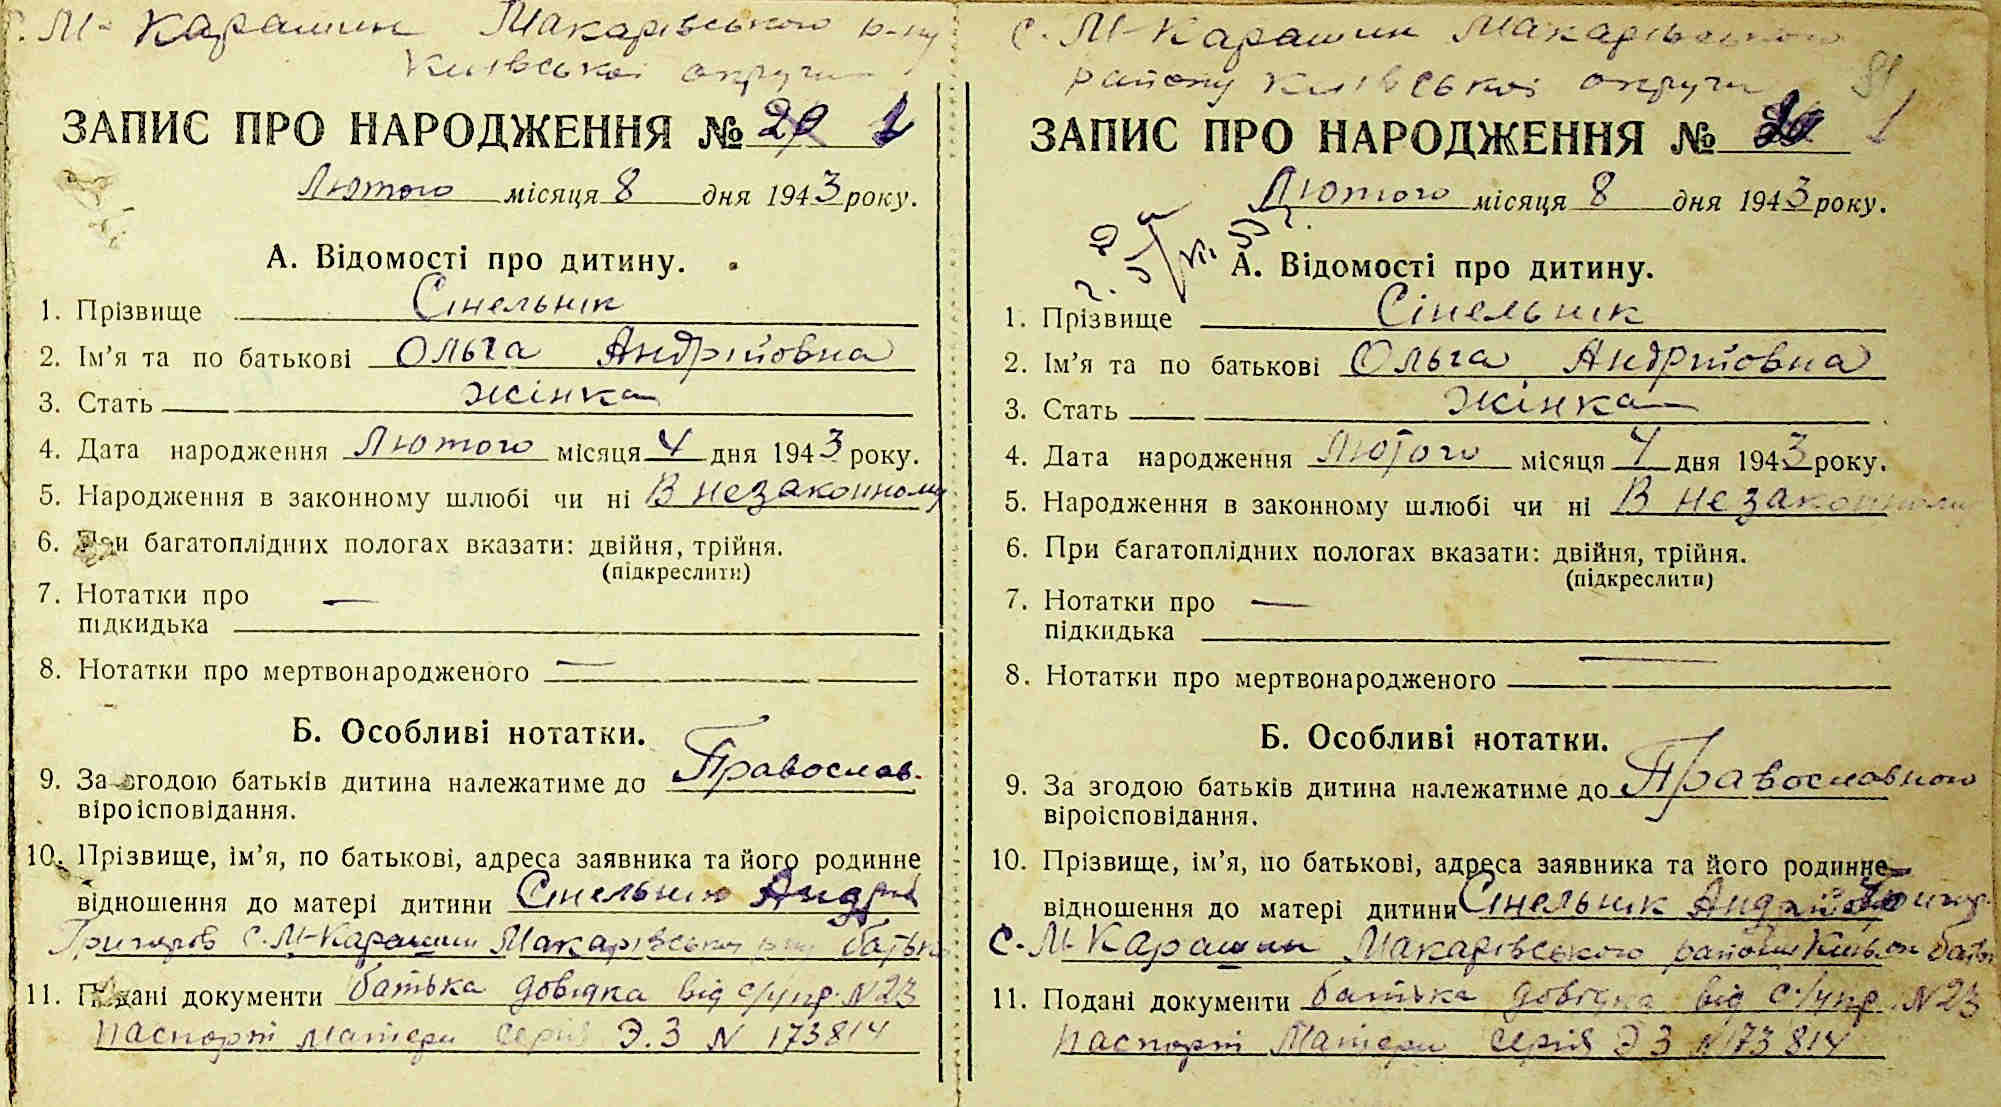 с. М-Карашин Макарівського р-ну
Київської округи
ЗАПИС ПРО НАРОДЖЕННЯ № 20 1
Лютого місяця 8 дня 1943 року.
А. Відомості про дитину.
1. Прізвище Сінельнік
2. Ім'я та по батькові Ольга Андрійовна
3. Стать жінка
4. Дата народження Лютого місяця 4 дня 1943 року.
5. Народження в законному шлюбі чи ні В незаконному
6. При багатоплідних пологах вказати: двійня, трійня.
(підкреслити)
7. Нотатки про —
підкидька
8. Нотатки про мертвонародженого —
Б. Особливі нотатки.
9. За згодою батьків дитина належатиме до Православ.
віроісповідання.
10. Прізвище, ім'я, по батькові, адреса заявника та його родинне
відношення до матері дитини Сінельник Андрій
Григоров с. М-Карашин Макарівського р-ну батько
11. Подані документи батька довідка від с/упр. N 23
паспорт матери серія Э.З N 173814
с. М-Карашин Макарівського
району Київської округи 81
ЗАПИС ПРО НАРОДЖЕННЯ № 20 1
Лютого місяця 8 дня 1943 року.
А. Відомості про дитину.
1. Прізвище Сінельнік
2. Ім'я та по батькові Ольга Андрійовна
3. Стать жінка
4. Дата народження Лютого місяця 4 дня 1943 року.
5. Народження в законному шлюбі чи ні В незаконному
6. При багатоплідних пологах вказати: двійня, трійня.
(підкреслити)
7. Нотатки про —
підкидька
8. Нотатки про мертвонародженого —
Б. Особливі нотатки.
9. За згодою батьків дитина належатиме до Православною
віроісповідання.
10. Прізвище, ім'я, по батькові, адреса заявника та його родинне
відношення до матері дитини Сінельнік Андрій Григ.
с. М-Карашин Макарівського району батько
11. Подані документи батька довідка від с/упр. N 23
паспорт Матери серія Э З N 173814